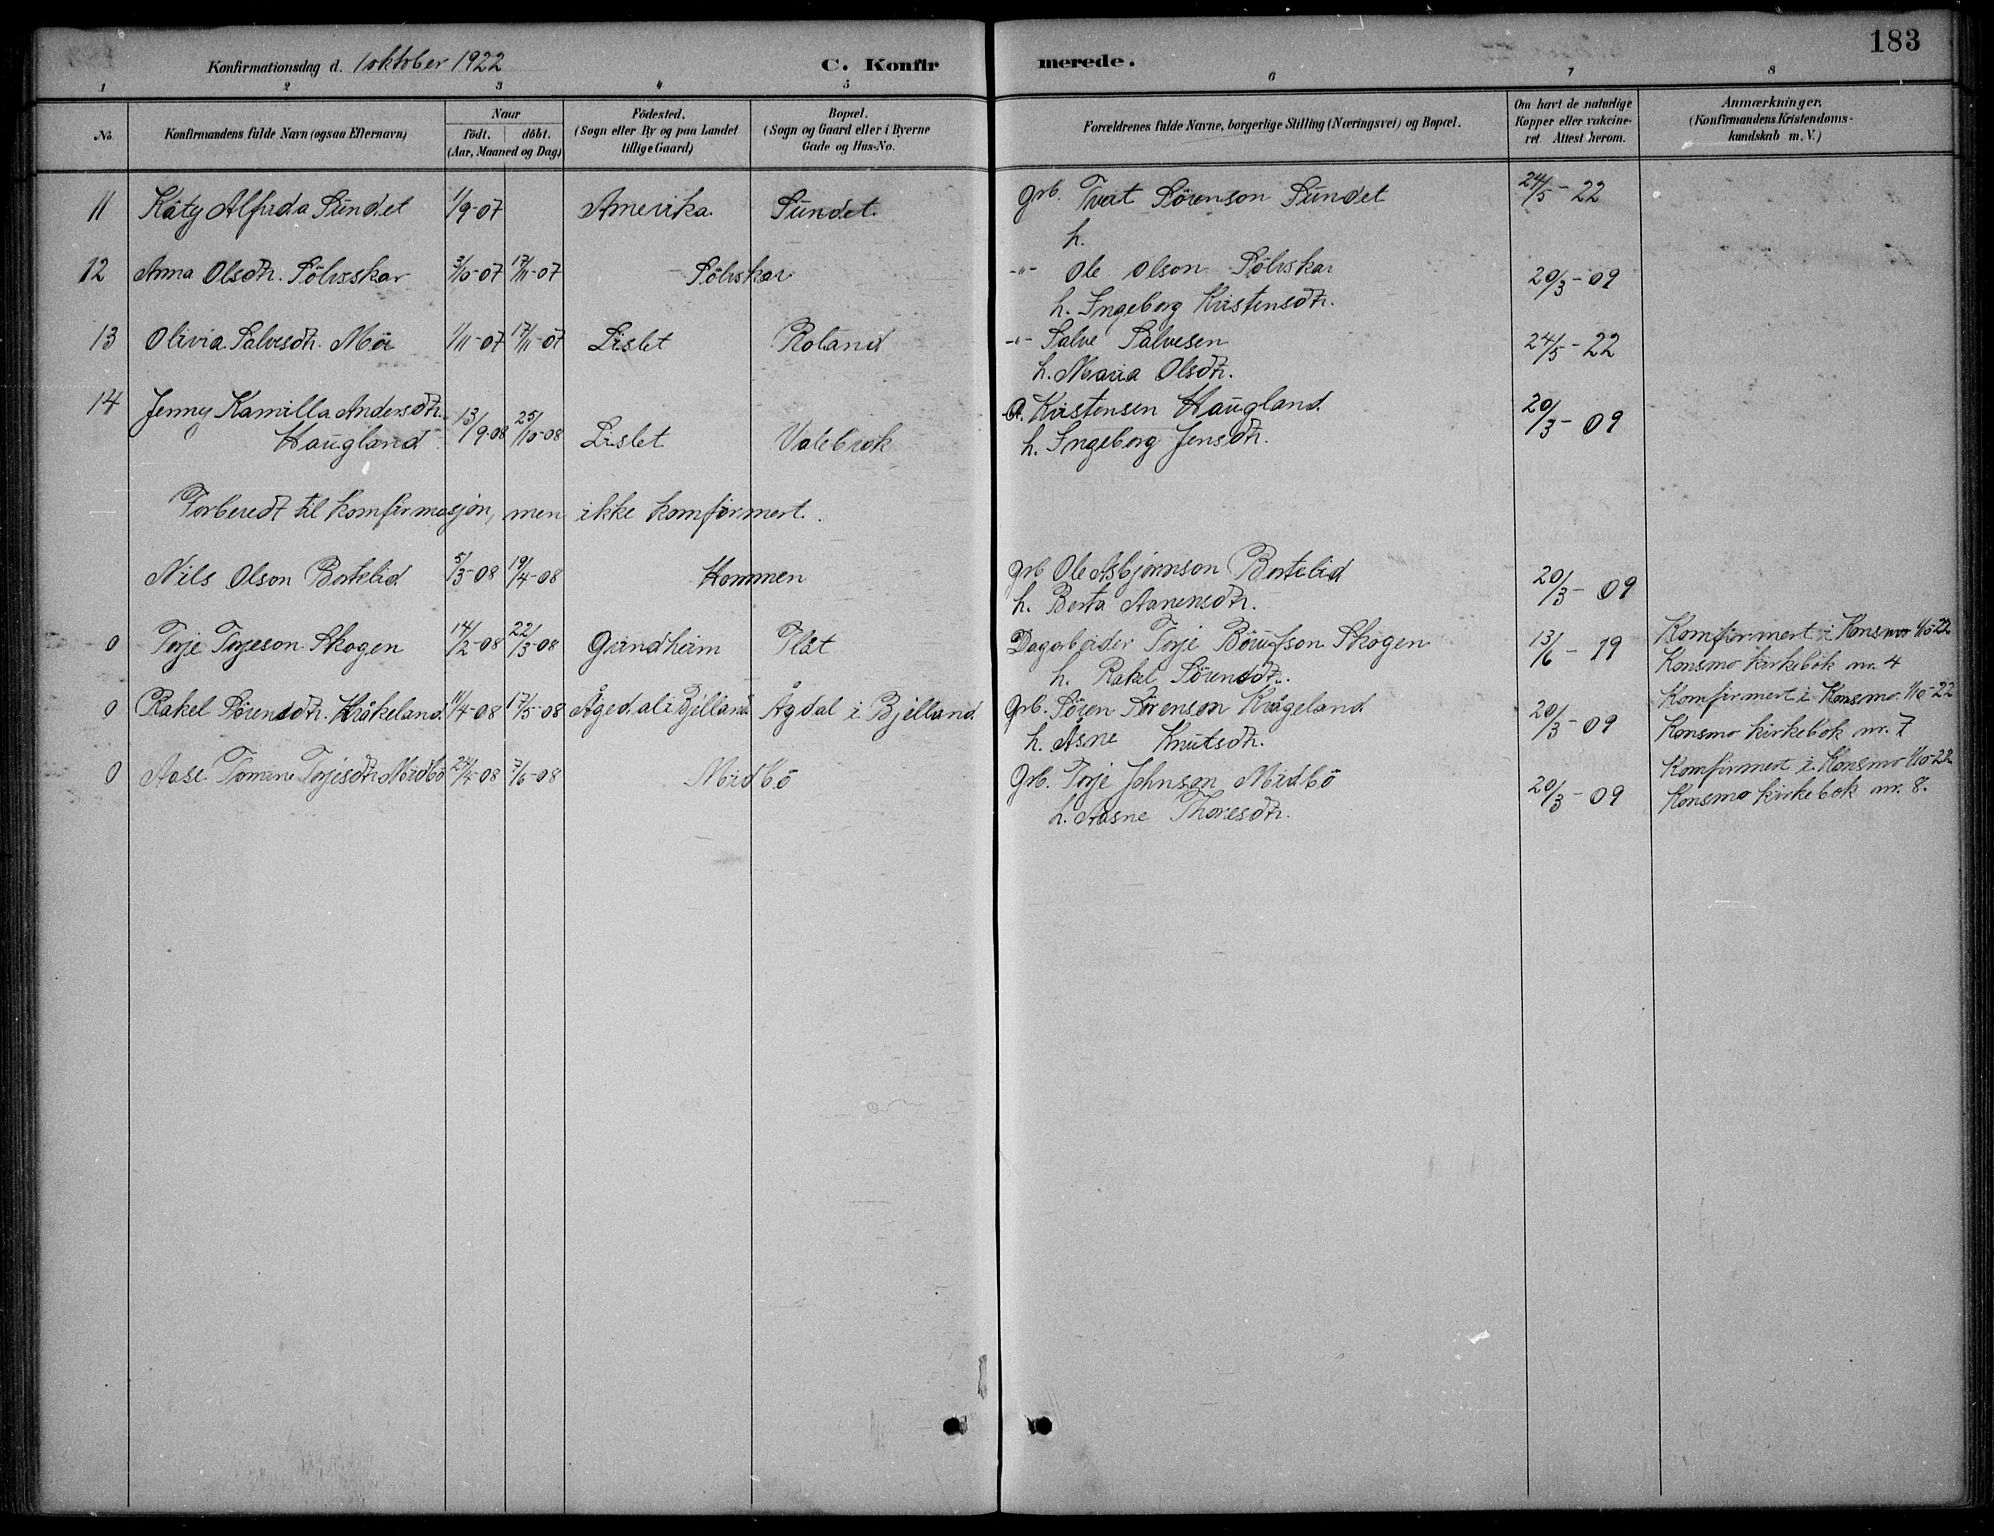 183
Konfirmationsdag d. 1 oktober 1922 C. Konfirmerede.
1 2 3 4 5 6 7 8
No. Konfirmandens fulde Navn (ogsaa Efternavn) Naar født. døbt. (Aar, Maaned og Dag) Fødested. (Sogn eller By og paa Landet tillige Gaard) Bopæl. (Sogn og Gaard eller i Byerne Gade og Hus-No. Forældrenes fulde Navne, borgerlige Stilling (Næringsvei) og Bopæl. Om havt de naturlige Kopper eller vakcineret. Attest herom. Anmærkninger. (Konfirmandens Kristendomskundskab m. V.)
11 Käty Alfrida Sundet 1/9-07 Amerika Sundet. grb. Tveit Sörenson Sundet 24/5-22
h.
12 Anna Olsdtr. Sölvsskar 3/10-07 17/11-07 Sölvskar -"- Ole Olson Sölvskar 20/3-09
h. Ingeborg Kristensdtr.
13 Olivia Salvesdtr. Möi 1/11-07 17/11-07 Lislet Roland -"- Salve Salvesen 24/5-22
h. Maria Olsdtr.
14 Jenny Kamilla Andersdtr. A. Kristensen Haugland. 20/3-09
Haugland 13/9-08 25/10-08 Lislet Valebrok h. Ingeborg Jensdtr.
Forberedt til komfirmasjon, men ikke komfirmert.
Nils Olson Bortelid 5/3-08 19/4-08 Hommen grb Ole Asbjörnson Bortelid 20/3-09
h. Berta Aanensdtr.
0 Torje Torjeson Skogen 14/2-08 22/3-08 Grindheim Flåt Dagarbeider Torje Börufson Skogen 13/6-19 Komfirmert i Konsmo 1/10-22
h. Rakel Sörensdtr. Konsmo kirkebok nr. 4
0 Rakel Sörensdtr. Kråkeland. 11/4-08 17/5-08 Ågedal i Bjelland Ågdal i Bjelland. grb. Sören Sörenson Krågeland 20/3-09 Komfirmert i Konsmo 1/10-22
h. Åsne Knutsdtr. Konsmo kirkebok nr. 7
0 Aase Tomine Torjesdtr. Midbö 24/4-08 7/6-08 Midbö grb. Torje Johnson Midbö 20/3-09 Komfirmert i Konsmo 1/10-22
h. Aasne Thoresdtr. Konsmo kirkebok nr. 8.